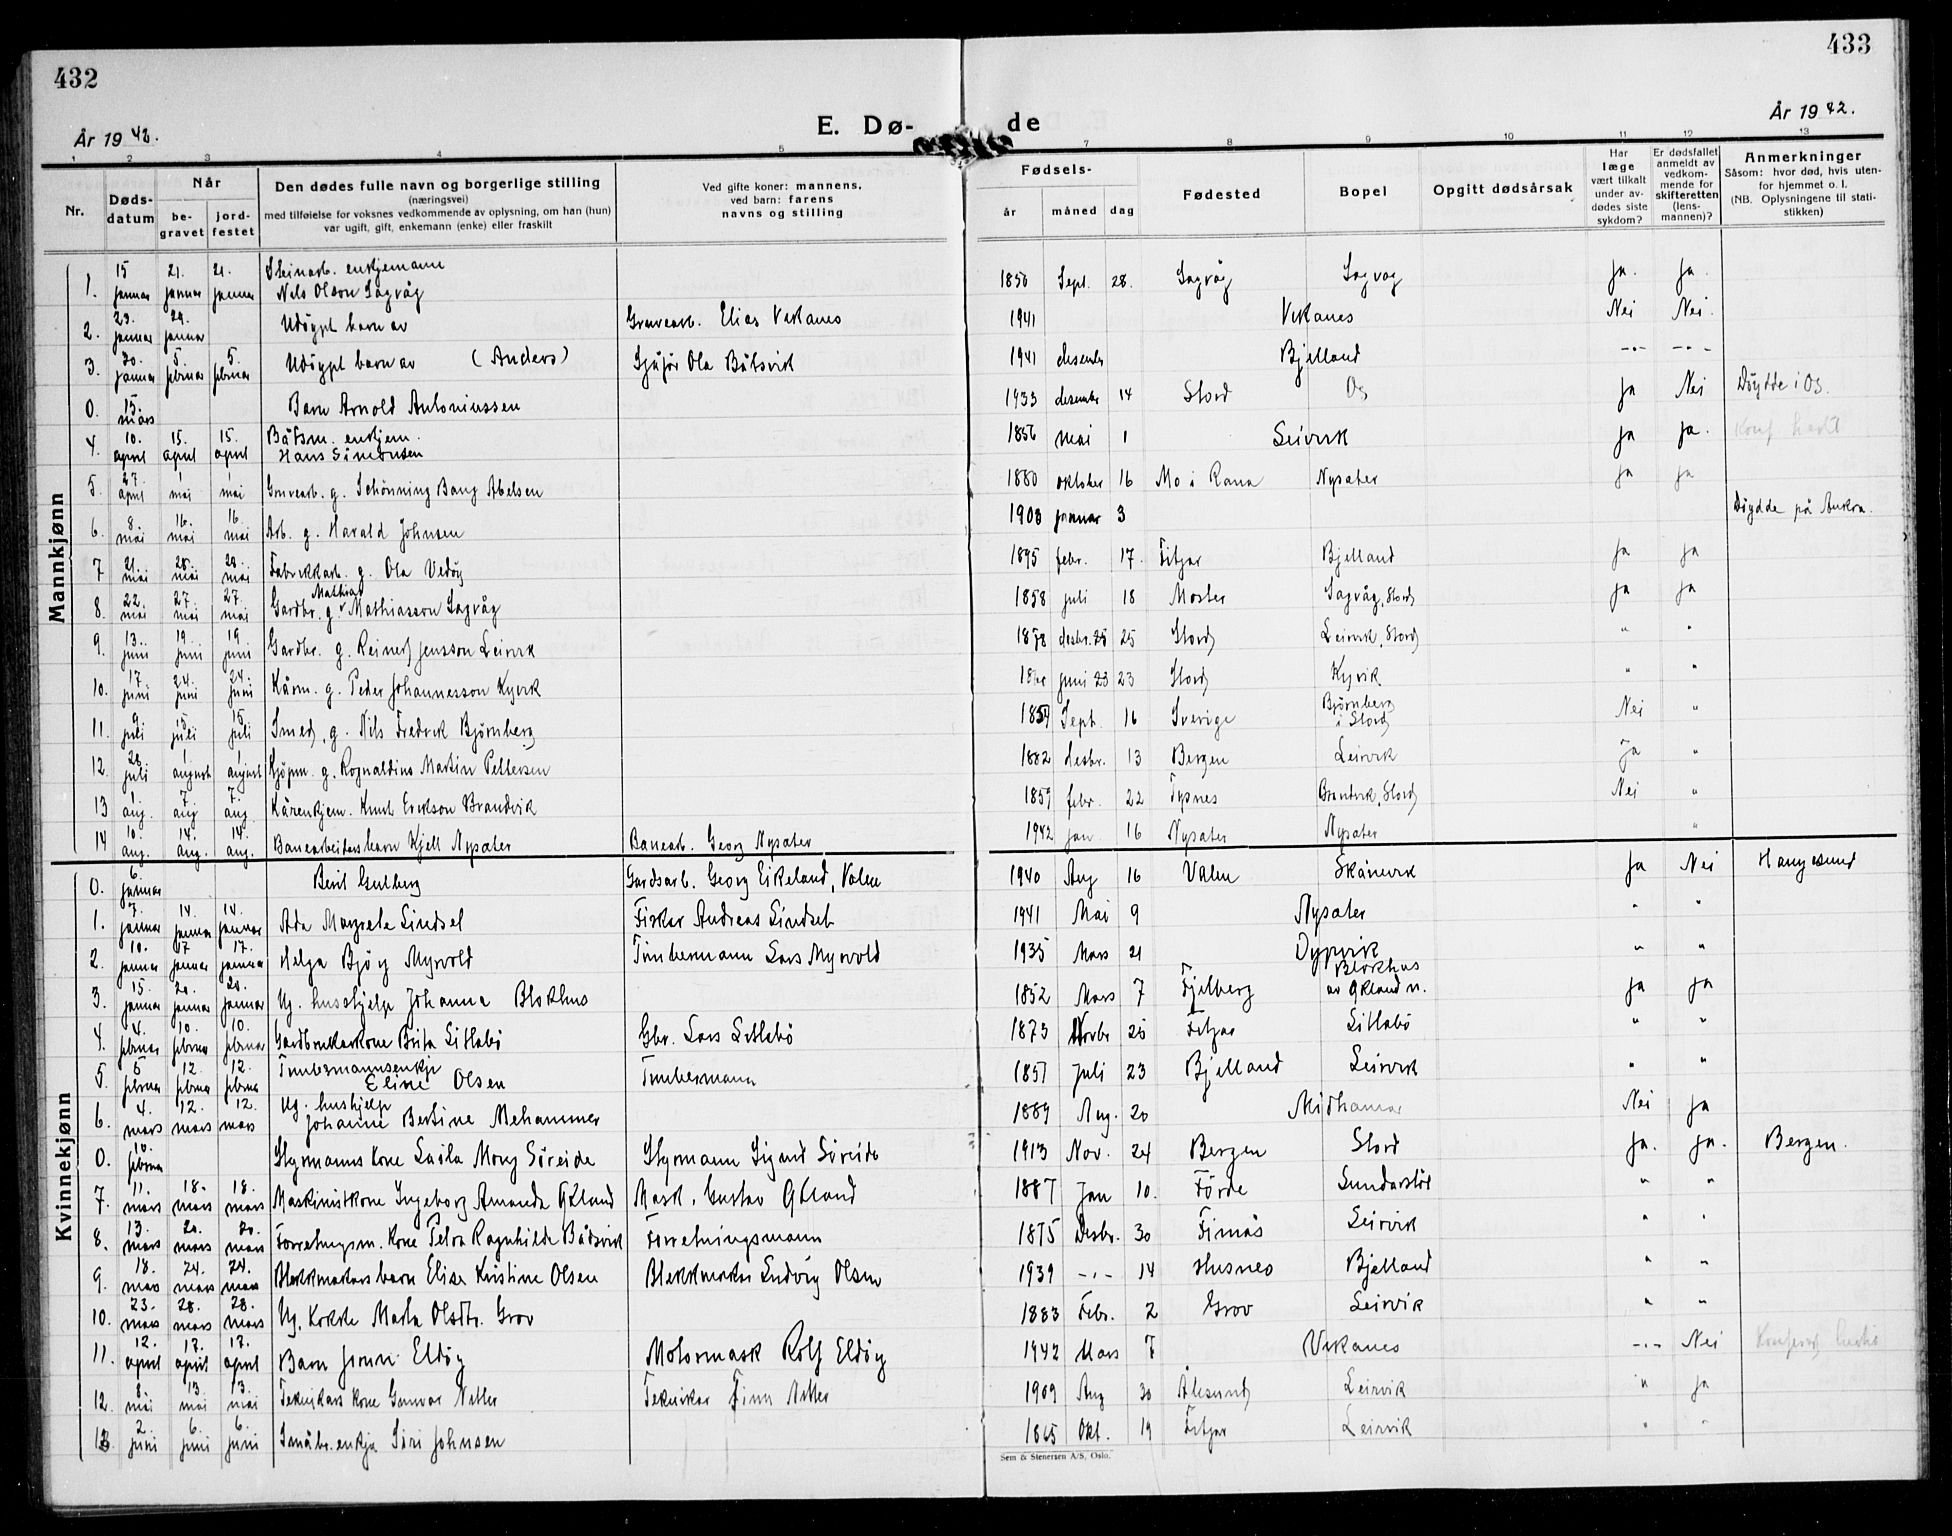 432
433
År 1942.
E. Dø-
de
År 1942.
1 2 3 4 5 7 8 9 10 11 12 13
Nr.
Døds-
datum
Når
be-
gravet
jord-
festet
Den dødes fulle navn og borgerlige stilling
(næringsvei)
med tilføielse for voksnes vedkommende av oplysning, om han (hun)
var ugift, gift, enkemann (enke) eller fraskilt
Ved gifte koner: mannens,
ved barn: farens
navns og stilling
Fødsels-
år måned dag
Fødested
Bopel
Opgitt dødsårsak
Har
læge
vært tilkalt
under av-
dødes siste
sykdom?
Er dødsfallet
anmeldt av
vedkom-
mende for
skifteretten
(lens-
mannen)?
Anmerkninger
Såsom: hvor død, hvis uten-
for hjemmet o. l.
(NB. Oplysningene til stati-
stikken)
Mannkjønn
1. 15 januar 21. januar 21. januar Steinarb. enkjemann Nils Olson Sagvåg 1850 Sept. 28. Sagvåg Sagvåg Ja. Ja.
2. 23. januar 24. januar Udøypt barn av Gruvearb. Elias Vikanes 1941 Vikanes Nei Nei.
3. 30. januar 5. februar 5. februar Udøypt barn av (Anders) Sjåfør Ola Båtsvik 1941 desember Bjelland -"- -"-
0. 15. mars Barn Arnold Antoniussen 1933 desember 14 Stord Os Ja Nei Døydde i Os.
4. 10. april 15. april 15. april Båtsm. enkjem. Hans Simonsen 1856 mai 1 Leirvik Ja Ja.
5. 27. april 1 mai 1 mai Gruvearb. g. Schönning Bang Abelsen 1880 oktober 16 Mo i Rana Nysæter Ja Ja
6. 8. mai 16. mai 16. mai Arb. g. Harald Johnsen 1908 januar 3 Døydde på
7 21. mai 28. mai 28. mai Fabrikkarb. g. Ola Vedøy 1895 febr. 17. Fitjar Bjelland Ja Ja
8. 22. mai 27. mai 27. mai Gardbr. g. Mathias Mathiasson Sagvåg 1858 juli 18 Moster Sagvåg, Stord Ja Ja
9. 13. juni 19. juni 19. juni Gardbr. g. Reinert Jensson Leirvik 1878 desbr. 25 25 Stord Leirvik, Stord " "
10. 17. juni 24. juni 24. juni Kårm. g. Peder Johannesson Kyvik juni 23 23 Stord Kyvik " "
11. 9 juli 15. juli 15. juli Smed, g. Nils Fredrik Bjørnberg 1859 Sept. 16 Sverige Bjørnberg i Stord Nei "
12. 28. juli 1. august 1. august Kjöpm. g. Rognaldius Martin Pettersen 1882 desbr. 13 Bergen Leirvik Ja "
13 1. aug. 7. aug 7. aug. Kårenkjem. Knut Erikson Brandvik 1859 febr. 22 Tysnes Brandvik, Stord Nei "
14 10. aug. 14. aug. 14. aug. Banearbeidars barn Kjell Nysæter Banearb. Georg Nysæter 1942 jan 16 Nysæter Nysæter "
Kvinnekjønn
0. 6. januar Berit Gulberg Gardsarb. Georg Eikeland, Valen 1940 Aug 16 Valen Skånevik Ja Nei Haugesund
1. 7. januar 14. januar 14. januar Ada Margrete Lindset Fisker Andreas Lindset 1941 Mai 9 Nysæter " "
2. 10. januar 17 januar 17. januar Helga Bjørg Myrvold Timbermann Lars Myrvold 1935 Mars 21 Dypvik " "
3. 15. januar 20. januar 20. januar Ug. husshjelp Johanna Blokhus 1852 Mars 7 Fjelberg Blokhus av Økland n. Ja Ja
4. 4. februar 10. februar 10. februar Gardbrukarkone Brita Litlabö Gbr. Lars Litlabö 1873 Novbr 25 Fitjar Litlabö " "
5. 5 februar 12. februar 12. februar Timbermannsenkje Eline Olsen Timbermann 1851 Juli 23 Bjelland Leirvik " "
6. 4. mars 12. mars 12. mars Ug. hushjelp Johanne Bertine Mehammer 1889 Aug. 20 Midhamar Nei Ja
0. 10. februar Styrmanns kone Laila Mony Söreide Styrmann Sigurd Söreide 1913 Nov. 24 Bergen Stord Ja. Ja. Bergen.
7. 11. mars 18. mars 18. mars Maskinistkone Ingeborg Amanda Økland Mask. Gustav Økland 1887 Jan 10. Förde Sunderstöl " "
8. 13. mars 20. mars 20. mars Forretningsm. kone Petra Ragnhilde Bådsvik Forretningsmann 1875 Desbr. 30 Finnås Leirvik " "
9. 18. mars 24. mars 24. mars Blekkmakars barn Elise Kristine Olsen Blekkmaker Ludvig Olsen 1939 -"- 14 Husnes Bjelland " "
10. 23. mars 28. mars 28. mars Ug. Kokke Marta Olsdtr. Grov 1883 Febr. 2 Grov Leirvik " "
11. 12. april 17. april 17. april Barn Jorunn Eldøy Motormask Rolf Eldøy 1942 Mars 7 Vikanes -"- Nei
12. 8. mai 13. mai 13. mai Teknikars kone Gunvor Netter Tekniker Finn Netter 1909 Aug 30 Ålesund Leirvik " Ja
13. 2. juni 6. juni 6. juni Småbr. enkja Siri Johnsen 1865 Okt. 19 Fitjar Leirvik " "
Sem & Stenersen A/S, Oslo.